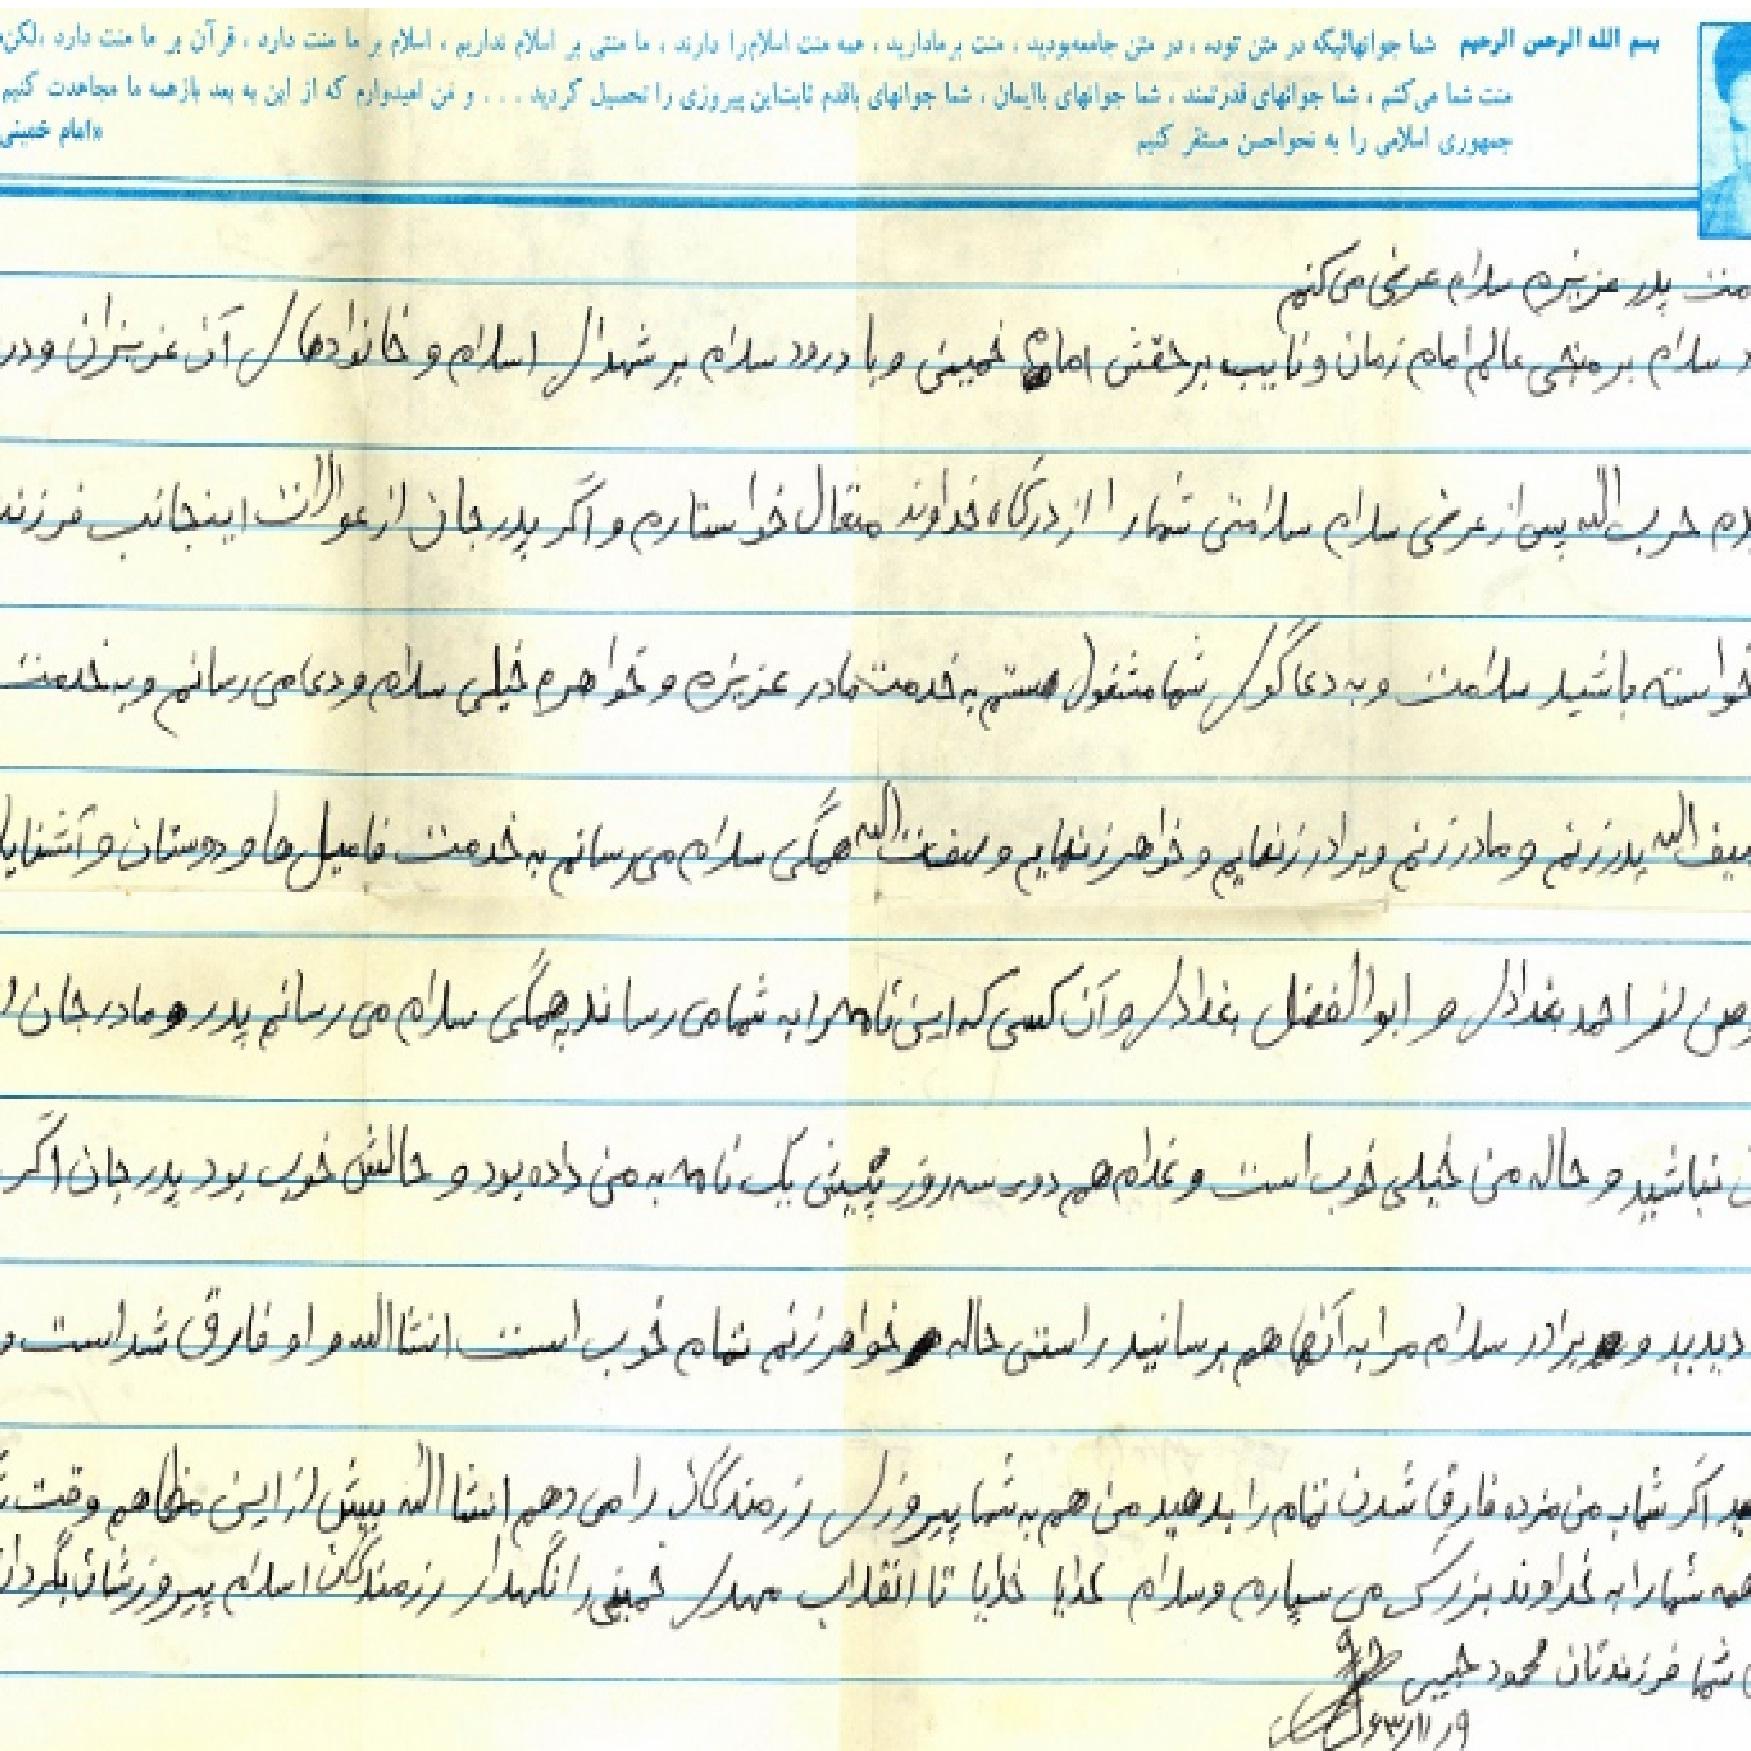 بسم الله الرحمن الرحیم شما جوانهائیکه در متن توده ، در متن جامعه بودید ، منت بر ما دارید ، همه منت اسلام را دارند ، ما منتی بر اسلام نداریم ، اسلام بر ما منت دارد ، قرآن بر ما منت دارد ، لکن
منت شما می‌کشم ، شما جوانهای قدرتمند ، شما جوانهای باایمان ، شما جوانهای باقدم ثابت این پیروزی را تحصیل کردید . . . و من امیدوارم که از این به بعد باز همه ما مجاهدت کنیم
جمهوری اسلامی را به نحو احسن مستقر کنیم
«امام خمینی
پدر عزیزم سلام عرض می‌کنم
سلام بر منجی عالم امام زمان و نایب برحقش امام خمینی و با درود سلام بر شهدای اسلام و خانوادهای آن عزیزان و در
حرب الله پس از عرض سلام سلامتی شما را از درگاه خداوند متعال خواستارم و اگر پدر جان از عوالات اینجانب فرزند
خواسته باشید سلامت و به دعاگوی شما مشغول هستم به خدمت مادر عزیزم و خواهرم خیلی سلام و دعا می رسانم و به خدمت
پدرزنم و مادرزنم و برادرزنهایم و خواهرزنهایم و صفت الله همگی سلام می رسانم به خدمت فامیل ها و دوستان و آشنایا
احمد بغدادی و ابوالفضل بغدادی و آن کسی که این نامه را به شما می رساند همگی سلام می رسانم پدر و مادر جان
نباشید و حاله من خیلی خوب است و غلام هم دو سه روز پیش یک نامه به من داده بود و حالش خوب بود پدر جان اگر
دیدید و برادر سلام مرا به آنها هم برسانید راستی حاله خواهرزنم تمام خوب است انشاالله و او فارق شد است و
اگر شما به من مزده فارق شدن تمام را بدهید من هم به شما پیروزی رزمندگان را می دهم انشاالله بیش از این مظاهم وقت
همه شما را به خداوند بزرگ می سپارم وسلام خدایا خدایا تا انقلاب مهدی خمینی را نگهدار رزمندگان اسلام پیروزشان بگردان
شما فرزندتان محمود حبیبی
۶۳/۱۱/۹